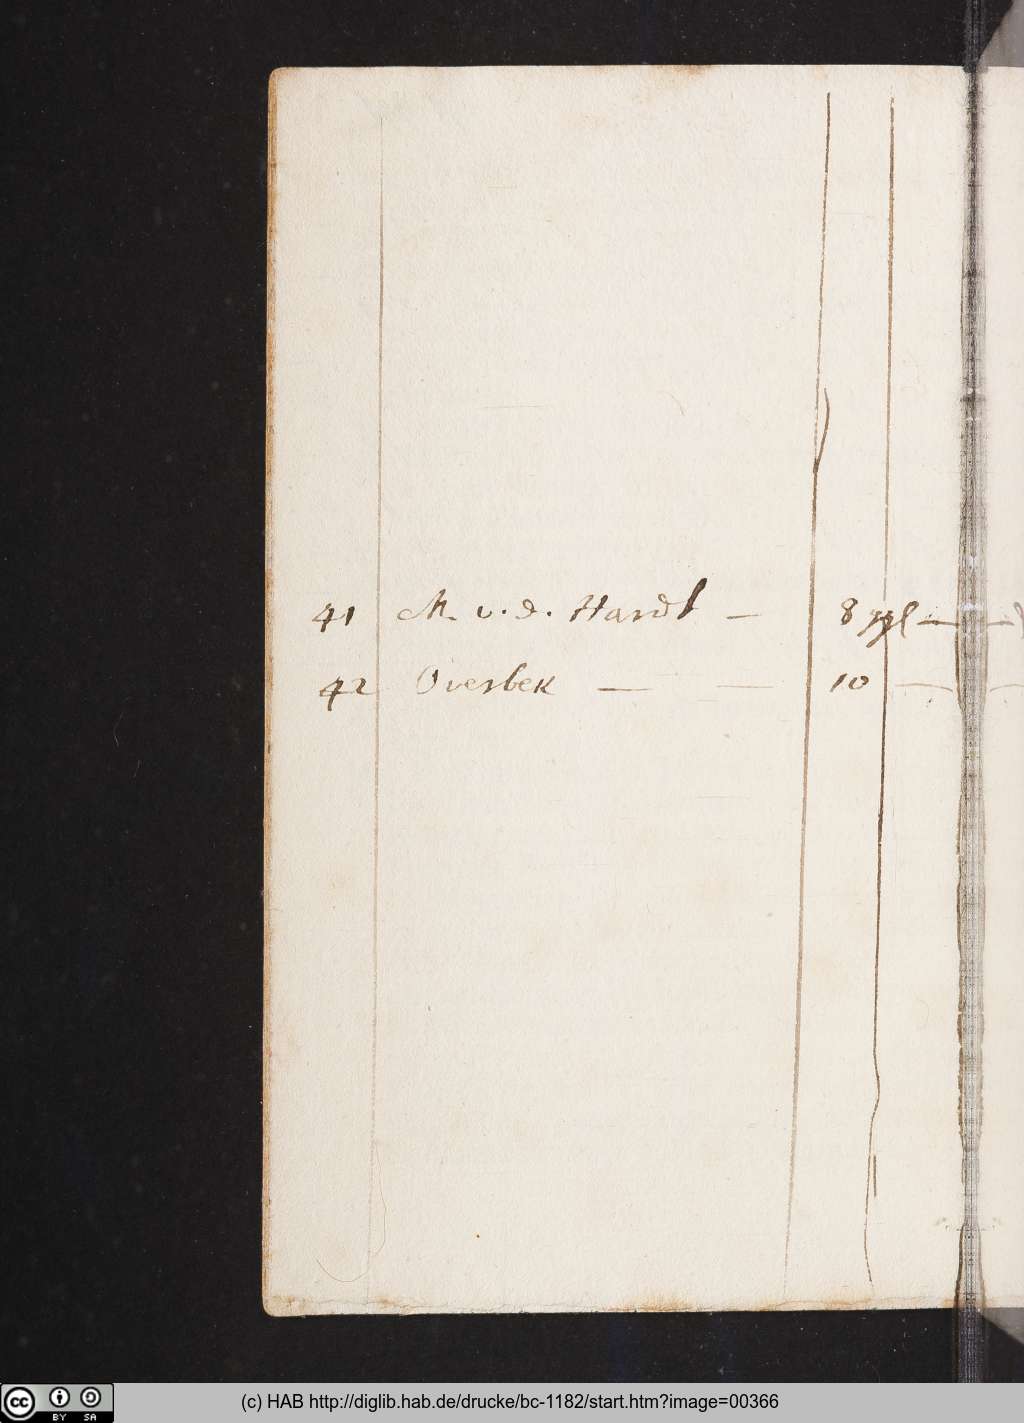 41 M. v. d. Hardt — 8 ggl —
42 Overbek — — 10 —
(c) HAB http://diglib.hab.de/drucke/bc-1182/start.htm?image=00366
cc BY SA